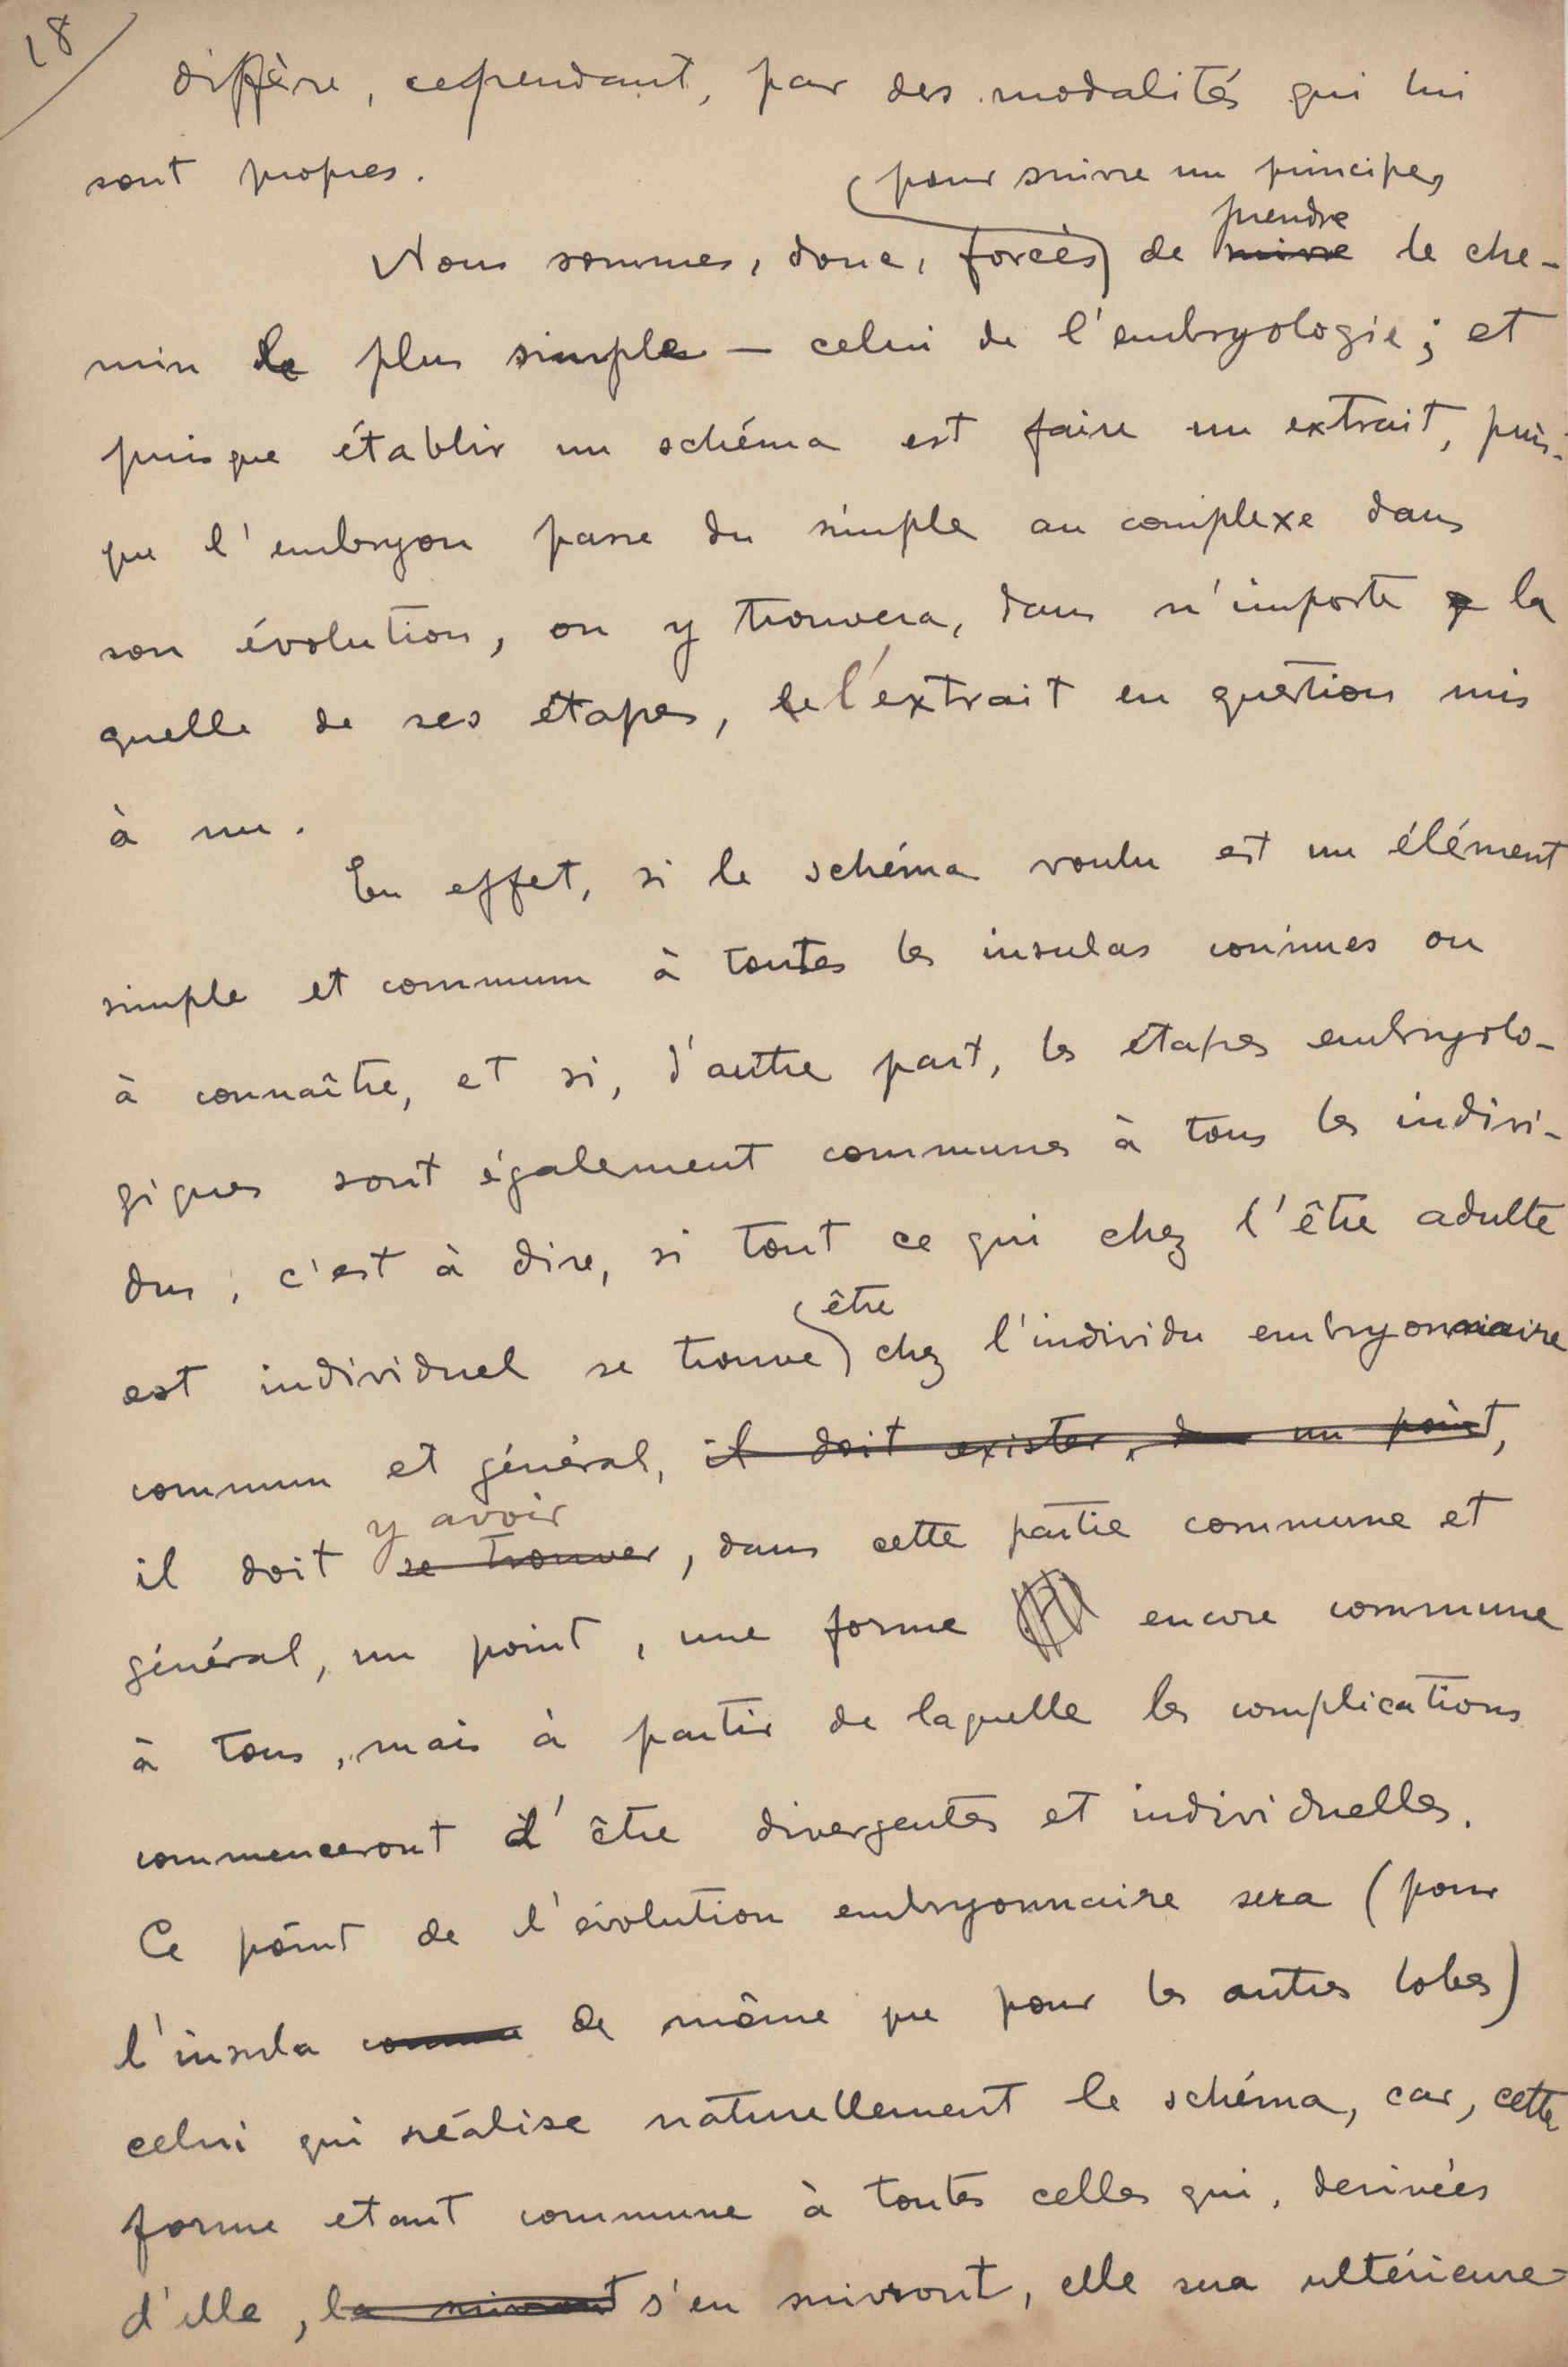 18
diffère, cependant, par des modalités qui lui
sont propres.
pour suivre un principe,
prendre
Nous sommes, donc, forcés de suivre le che-
min le plus simple — celui de l'embryologie; et
puisque établir un schéma est faire un extrait, puis-
que l'embryon passe du simple au complexe dans
son évolution, on y trouvera, dans n'importe la
quelle de ses étapes, le l'extrait en question mis
à nu.
En effet, si le schéma voulu est un élément
simple et commun à toutes les insulas connues ou
à connaître, et si, d'autre part, les étapes embryolo-
giques sont également communes à tous les indivi-
dus, c'est à dire, si tout ce qui chez l'être adulte
être
est individuel se trouve chez l'individu embryonnaire
commun et général, il doit exister, dans un point,
y avoir
il doit se trouver, dans cette partie commune et
général, un point, une forme encore commune
à tous, mais à partir de laquelle les complications
commenceront d'être divergentes et individuelles.
Ce point de l'évolution embryonnaire sera (pour
l'insula comme de même que pour les autres lobes)
celui qui réalise naturellement le schéma, car, cette
forme etant commune à toutes celles qui, derivées
d'elle, la suivront s'en suivront, elle sera ultérieure-